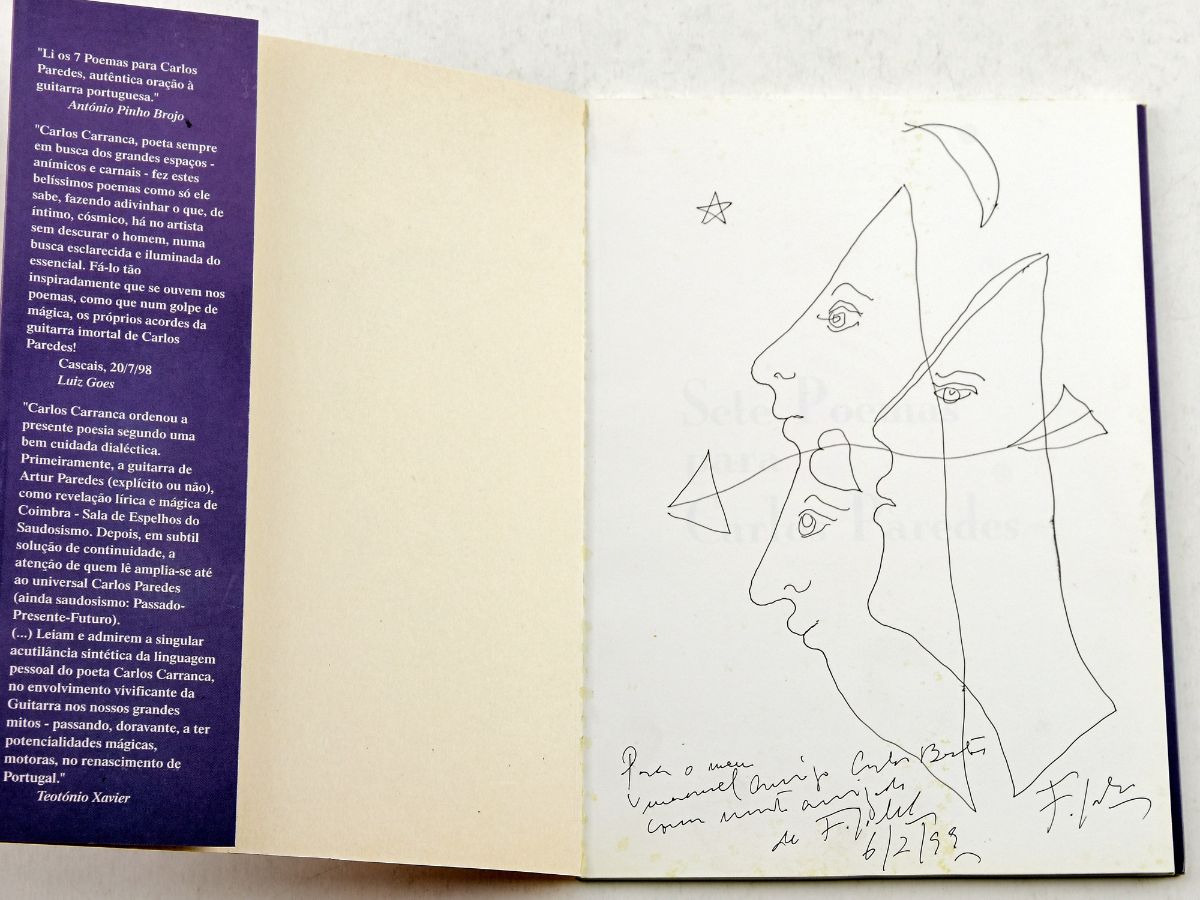 "Li os 7 Poemas para Carlos
Paredes, autêntica oração à
guitarra portuguesa."
António Pinho Brojo
"Carlos Carranca, poeta sempre
em busca dos grandes espaços -
anímicos e carnais - fez estes
belíssimos poemas como só ele
sabe, fazendo adivinhar o que, de
íntimo, cósmico, há no artista
sem descurar o homem, numa
busca esclarecida e iluminada do
essencial. Fá-lo tão
inspiradamente que se ouvem nos
poemas, como que num golpe de
mágica, os próprios acordes da
guitarra imortal de Carlos
Paredes!
Cascais, 20/7/98
Luiz Goes
"Carlos Carranca ordenou a
presente poesia segundo uma
bem cuidada dialéctica.
Primeiramente, a guitarra de
Artur Paredes (explícito ou não),
como revelação lírica e mágica de
Coimbra - Sala de Espelhos do
Saudosismo. Depois, em subtil
solução de continuidade, a
atenção de quem lê amplia-se até
ao universal Carlos Paredes
(ainda saudosismo: Passado-
Presente-Futuro).
(...) Leiam e admirem a singular
acutilância sintética da linguagem
pessoal do poeta Carlos Carranca,
no envolvimento vivificante da
Guitarra nos nossos grandes
mitos - passando, doravante, a ter
potencialidades mágicas,
motoras, no renascimento de
Portugal."
Teotónio Xavier
Sete Poemas
para
Carlos Paredes
Para o meu
amigo Carlos
com muita amizade
de F.
6/2/99
F.